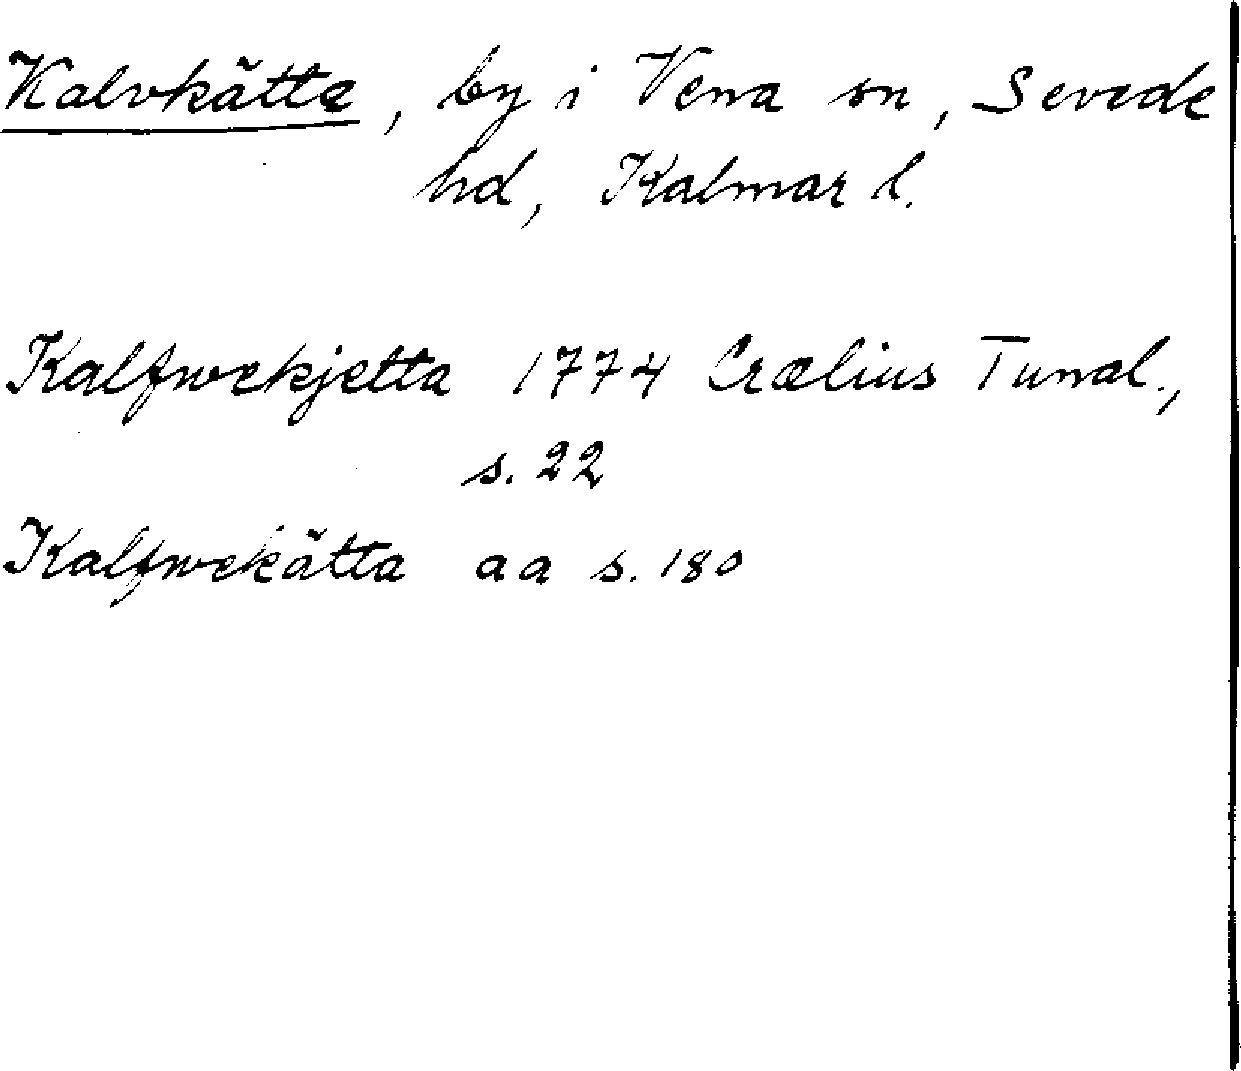 Kalvkätte, by i Vena sn, Sevede
hd, Kalmar l.
Kalfwekjetta 1774 Crælius Tunal.,
s. 22
Kalfwekätta aa s. 180